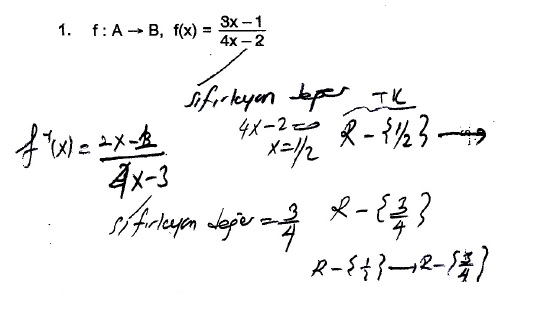 1. f : A → B, f(x) = 3x – 1 / 4x – 2
sıfırlayan değer TK
4x-2=0 R - {1/2} →
x=1/2
f⁻¹(x) = 2x-1 / 4x-3
sıfırlayan değer = 3/4 R - {3/4}
R - {1/2} → R - {3/4}